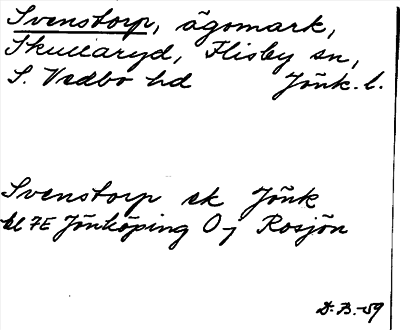 Svenstorp, ägomark,
Skullaryd, Flisby sn,
S. Vedbo hd Jönk. l.
Svenstorp ek Jönk
bl 7E Jönköping O j Rosjön
D. B. -59